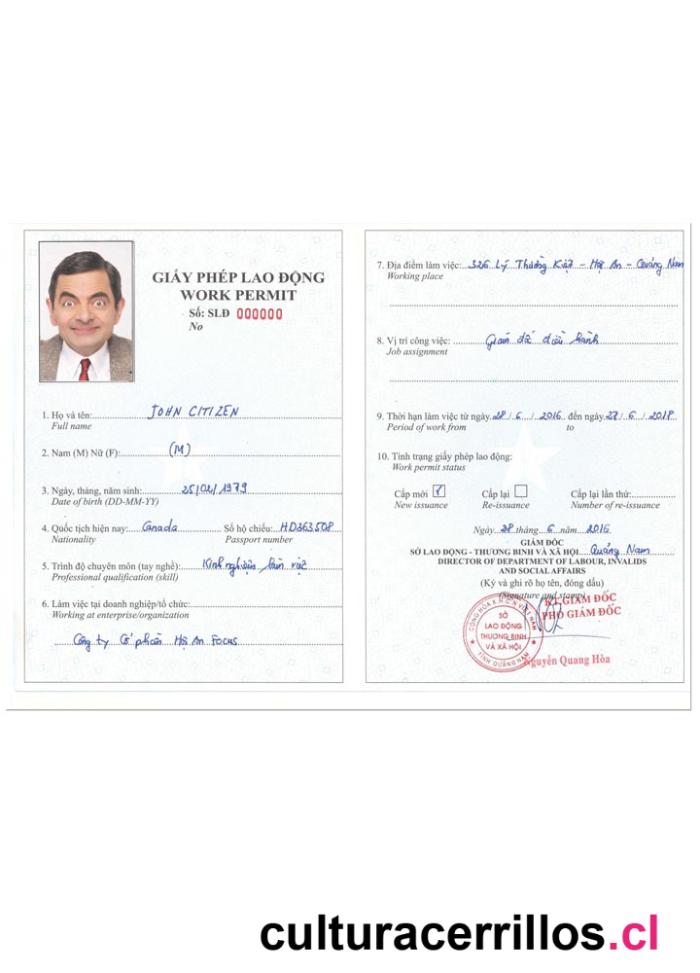 GIẤY PHÉP LAO ĐỘNG
WORK PERMIT
Số: SLĐ 000000
No
1. Họ và tên: JOHN CITIZEN
Full name
2. Nam (M) Nữ (F): (M)
3. Ngày, tháng, năm sinh: 25/02/1979
Date of birth (DD-MM-YY)
4. Quốc tịch hiện nay: Canada Số hộ chiếu: HD363508
Nationality Passport number
5. Trình độ chuyên môn (tay nghề): Kinh nghiệm làm việc
Professional qualification (skill)
6. Làm việc tại doanh nghiệp/tổ chức:
Working at enterprise/organization
Công ty Cổ phần Hội An Focus
7. Địa điểm làm việc: 326 Lý Thường Kiệt - Hội An - Quảng Nam
Working place
8. Vị trí công việc: Giám đốc điều hành
Job assignment
9. Thời hạn làm việc từ ngày 28/6/2016 đến ngày 27/6/2018
Period of work from to
10. Tình trạng giấy phép lao động:
Work permit status
Cấp mới Cấp lại Cấp lại lần thứ:
New issuance Re-issuance Number of re-issuance
Ngày 28 tháng 6 năm 2016
GIÁM ĐỐC
SỞ LAO ĐỘNG - THƯƠNG BINH VÀ XÃ HỘI Quảng Nam
DIRECTOR OF DEPARTMENT OF LABOUR, INVALIDS
AND SOCIAL AFFAIRS
(Ký và ghi rõ họ tên, đóng dấu)
(Signature and stamp)
KT.GIÁM ĐỐC
PHÓ GIÁM ĐỐC
CỘNG HÒA X.H.C.N VIỆT NAM
SỞ
LAO ĐỘNG
THƯƠNG BINH
VÀ XÃ HỘI
TỈNH QUẢNG NAM
Nguyễn Quang Hòa
culturacerrillos.cl